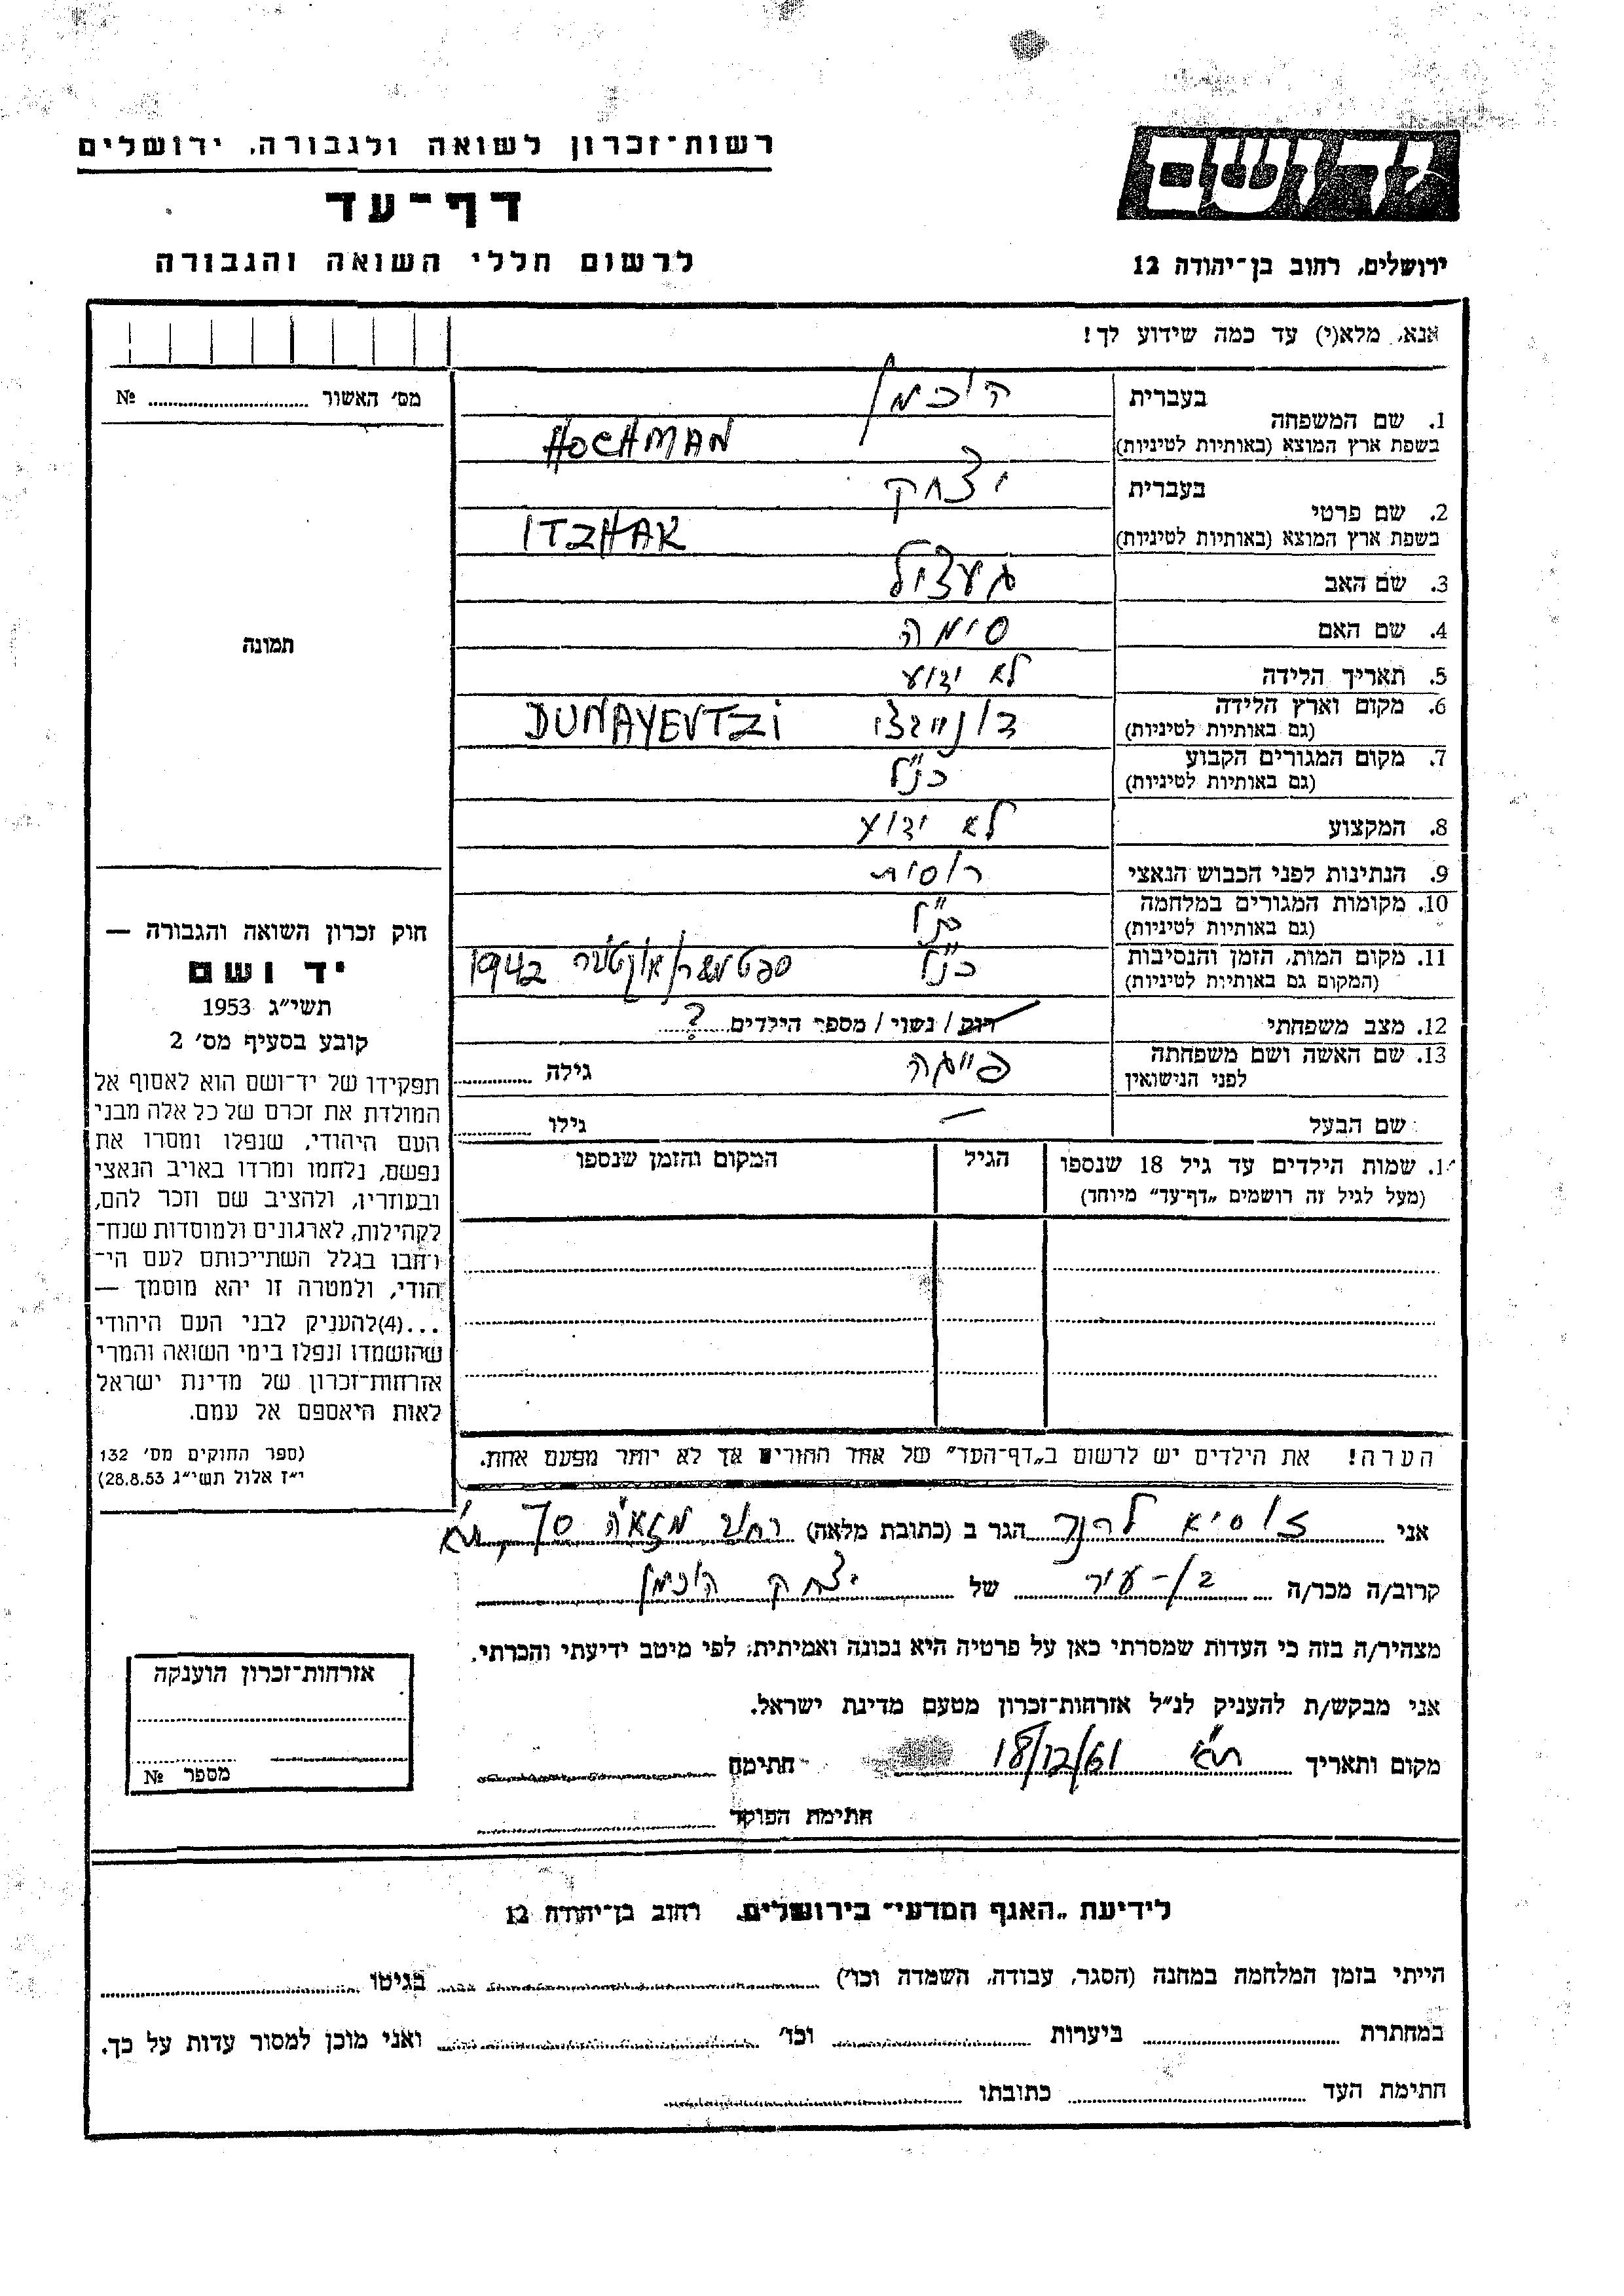 רשות-זכרון לשואה ולגבורה, ירושלים
דף-עד
לרשום חללי השואה והגבורה
יד ושם
ירושלים, רחוב בן-יהודה 12
אנא, מלא(י) עד כמה שידוע לך!
מס׳ האשור № 
תמונה
1. שם המשפחה בעברית הוכמן
בשפת ארץ המוצא (באותיות לטיניות) HOCHMAN
2. שם פרטי בעברית יצחק
בשפת ארץ המוצא (באותיות לטיניות) ITZHAK
3. שם האב
4. שם האם סימה
5. תאריך הלידה לא ידוע
6. מקום וארץ הלידה DUNAYEVTZI
(גם באותיות לטיניות)
7. מקום המגורים הקבוע כנ״ל
(גם באותיות לטיניות)
8. המקצוע לא ידוע
9. הנתינות לפני הכבוש הנאצי רוסית
10. מקומות המגורים במלחמה כנ״ל
(גם באותיות לטיניות)
11. מקום המות, הזמן והנסיבות כנ״ל ספטמבר/אוקטובר 1942
(המקום גם באותיות לטיניות)
12. מצב משפחתי רוק / נשוי / מספר הילדים ?
13. שם האשה ושם משפחתה לפני הנישואין פייגה גילה
שם הבעל — גילו
שמות הילדים עד גיל 18 שנספו הגיל המקום והזמן שנספו
(מעל לגיל זה רושמים „דף-עד״ מיוחד)
הערה! את הילדים יש לרשום ב„דף-העד״ של אחד ההורים אך לא יותר מפעם אחת.
חוק זכרון השואה והגבורה —
יד ושם
תשי״ג 1953
קובע בסעיף מס׳ 2
תפקידו של יד-ושם הוא לאסוף אל
המולדת את זכרם של כל אלה מבני
העם היהודי, שנפלו ומסרו את
נפשם, נלחמו ומרדו באויב הנאצי
ובעוזריו, ולהציב שם וזכר להם,
לקהילות, לארגונים ולמוסדות שנח-
רבו בגלל השתייכותם לעם הי-
הודי, ולמטרה זו יהא מוסמך —
...(4)להעניק לבני העם היהודי
שהושמדו ונפלו בימי השואה והמרי
אזרחות-זכרון של מדינת ישראל
לאות היאספם אל עמם.
(ספר החוקים מס׳ 132
י״ז אלול תשי״ג 28.8.53)
אני זוסיא לרנר הגר ב (כתובת מלאה) רחוב מזא״ה 70, ת״א
קרוב/ה מכר/ה בן-עיר של יצחק הוכמן
מצהיר/ה בזה כי העדות שמסרתי כאן על פרטיה היא נכונה ואמיתית, לפי מיטב ידיעתי והכרתי.
אני מבקש/ת להעניק לנ״ל אזרחות-זכרון מטעם מדינת ישראל.
מקום ותאריך ת״א 18/12/61 חתימה
חתימת הפוקד
אזרחות-זכרון הוענקה
מספר №
לידיעת „האגף המדעי״ בירושלים, רחוב בן-יהודה 12
הייתי בזמן המלחמה במחנה (הסגר, עבודה, השמדה וכו׳) בגיטו
במחתרת ביערות וכו׳ ואני מוכן למסור עדות על כך.
חתימת העד כתובתו